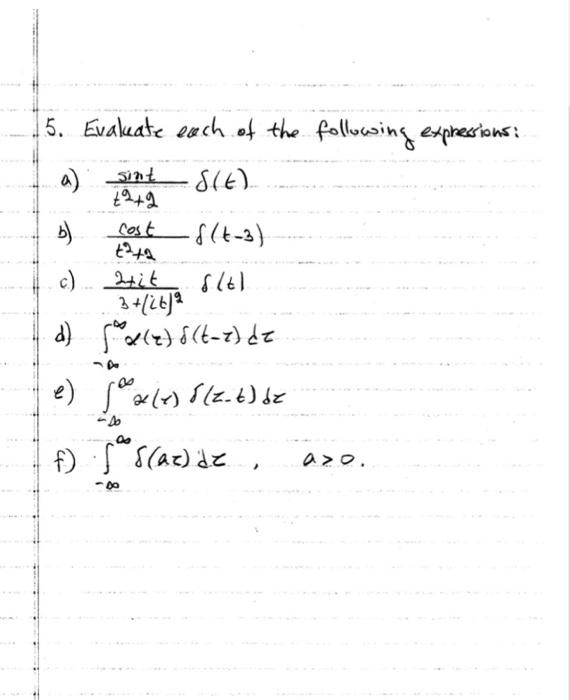 5. Evaluate each of the following expressions:
a) sint/(t²+2) δ(t)
b) cost/(t²+2) δ(t-3)
c) (2+it)/(3+(it)²) δ(t)
d) ∫_{-∞}^{∞} x(τ) δ(t-τ) dτ
e) ∫_{-∞}^{∞} x(τ) δ(τ-t) dτ
f) ∫_{-∞}^{∞} δ(aτ) dτ , a>0.